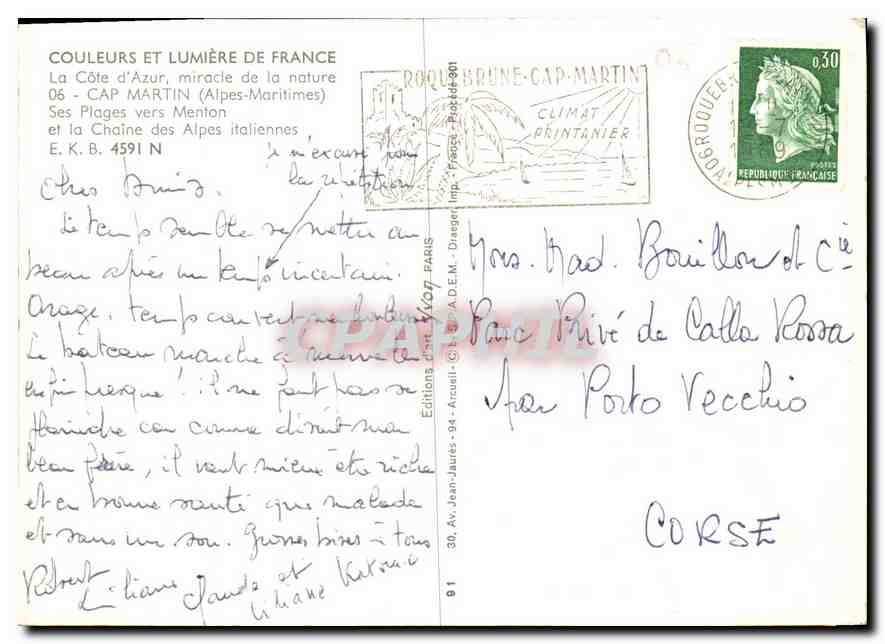 COULEURS ET LUMIÈRE DE FRANCE
La Côte d'Azur, miracle de la nature
06 - CAP MARTIN (Alpes-Maritimes)
Ses Plages vers Menton
et la Chaîne des Alpes italiennes
E. K. B. 4591 N
je m'excuse pour
la répétition
Chers Amis.
Le temps semble se mettre au
beau après un temps incertain.
Orage, temps couvert
Le bateau marche à merveille
enfin presque ! il ne faut pas se
plaindre car comme disait mon
beau père, il vaut mieux être riche
et en bonne santé que malade
et sans un sou. Grosses bises à tous
Robert Liliane Claude et Liliane
Éditions d'art YVON PARIS
91 30, Av. Jean-Jaurès - 94 - Arcueil - C. by S.P.A.D.E.M. - Draeger, Imp. - France - Procédé 301
ROQUEBRUNE-CAP-MARTIN
CLIMAT
PRINTANIER
0,30
POSTES
REPUBLIQUE FRANÇAISE
Mons. Mad. Bouillon et Cie
Parc Privé de Calla Rossa
par Porto Vecchio
CORSE
CPARAMA